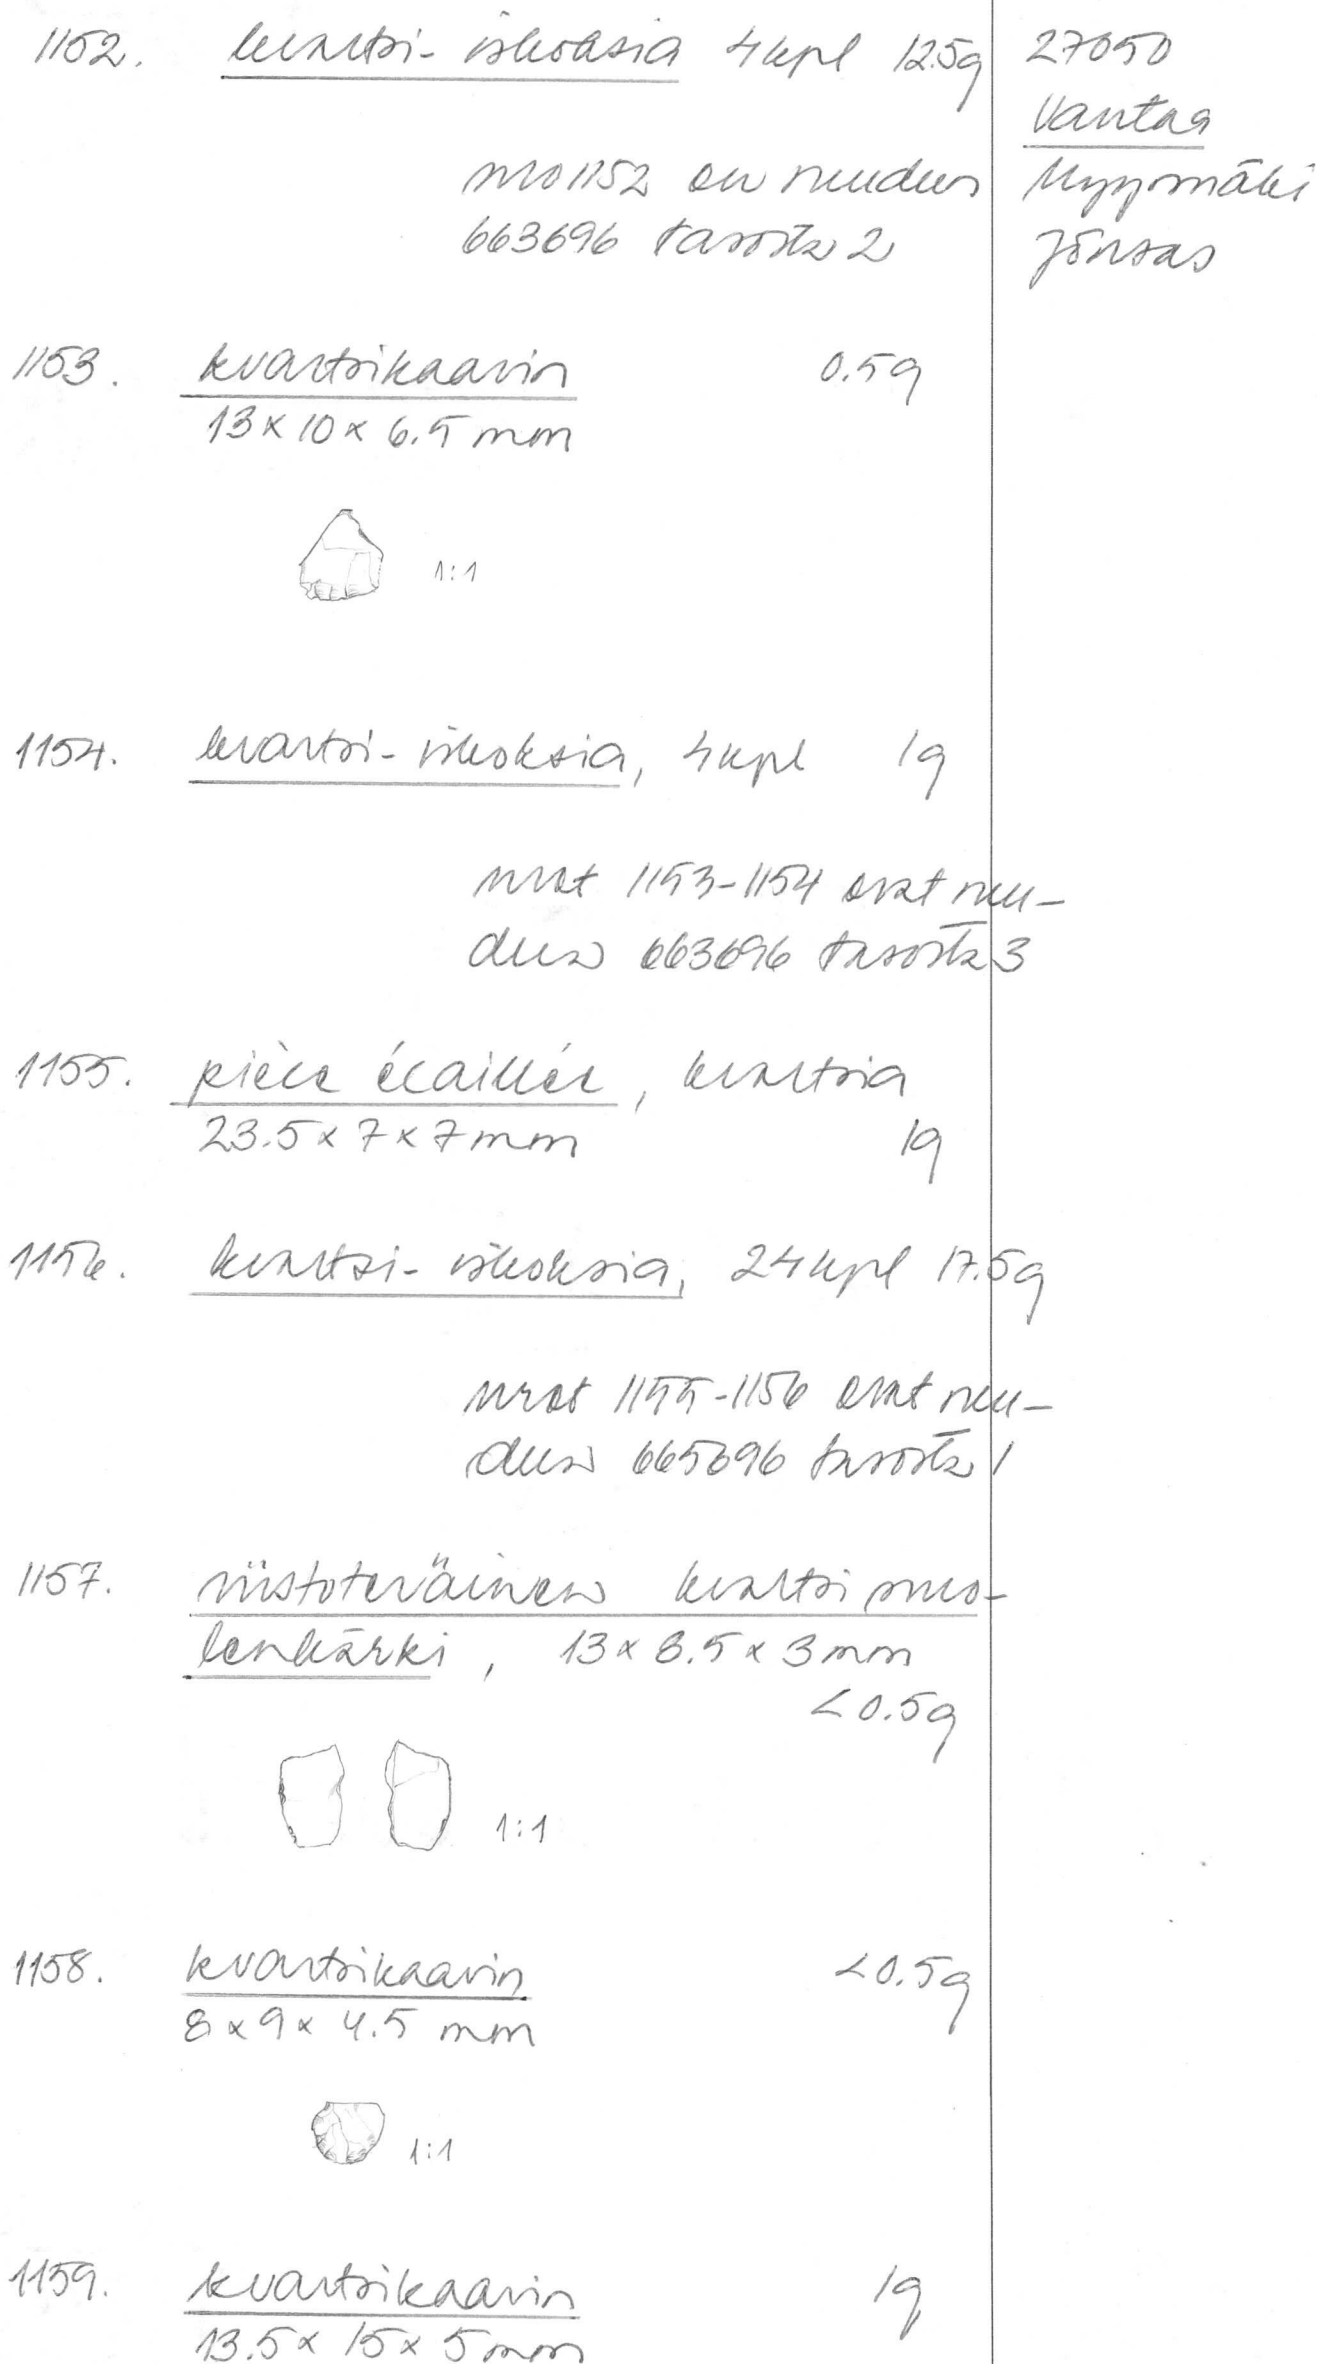 1152. kvartsi-iskoksia 4 kpl 12.5g
27050
Vantaa
Myyrmäki
Jönsas
nro 1152 on ruudun
663696 tasosta 2
1153. kvartsikaavin 0.5g
13 x 10 x 6.5 mm
1:1
1154. kvartsi-iskoksia, 4 kpl 1g
nrot 1153-1154 ovat ruu-
dun 663696 tasosta 3
1155. pièce écaillée, kvartsia
23.5 x 7 x 7 mm 1g
1156. kvartsi-iskoksia, 24 kpl 17.5g
nrot 1155-1156 ovat ruu-
dun 665696 tasosta 1
1157. viistoteräinen kvartsi nuo-
lenkärki, 13 x 8.5 x 3 mm
< 0.5g
1:1
1158. kvartsikaavin < 0.5g
8 x 9 x 4.5 mm
1:1
1159. kvartsikaavin 1g
13.5 x 15 x 5 mm